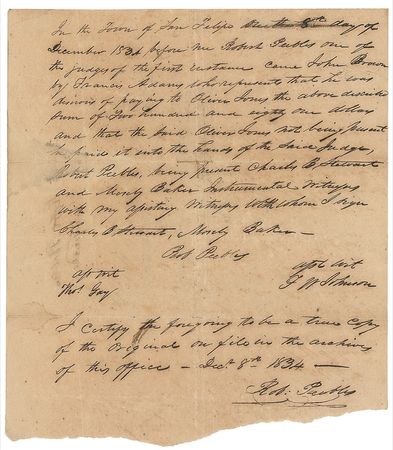 In the Town of San Felipe on the 8th day of
December 1834 before me Robert Peebles one of
the judges of the first instance came John Brown
by Francis Adams who represent that he was
desirous of paying to Oliver Jones the above describe
sum of Two hundred and eighty one dollars
and that the said Oliver Jones not being present
he paid it into the hands of the said Judge,
Robert Peebles, being present Charles B Stewart
and Mosely Baker Instrumental Witness
with my assisting Witness with whom I sign
Charles B Stewart, Mosely Baker —
Rob Peebles
ast wit
asst wit
Thos. Gay
T W Johnson
I certify the foregoing to be a true copy
of the Original on file in the archives
of this office — Dec. 8th 1834 —
Rob: Peebles